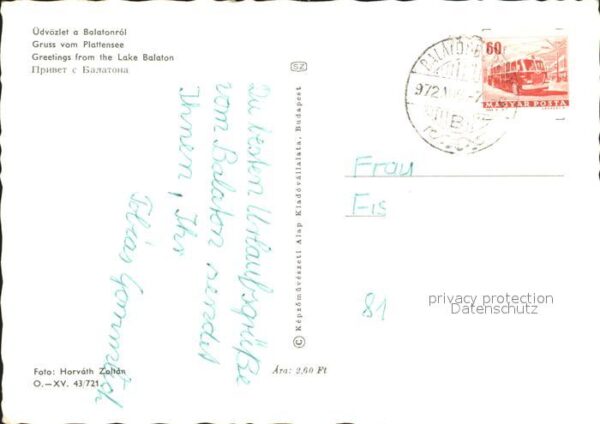 Üdvözlet a Balatonról
Gruss vom Plattensee
Greetings from the Lake Balaton
Привет с Балатона
SZ
60
MAGYAR POSTA
972
Die besten Urlaubsgrüße
vom Balaton sendet
Ihnen, Ihr
Tobias
© Képzőművészeti Alap Kiadóvállalata, Budapest
Frau
Eis
81
privacy protection
Datenschutz
Foto: Horváth Zoltán
O.—XV. 43/721
Ára: 2,60 Ft